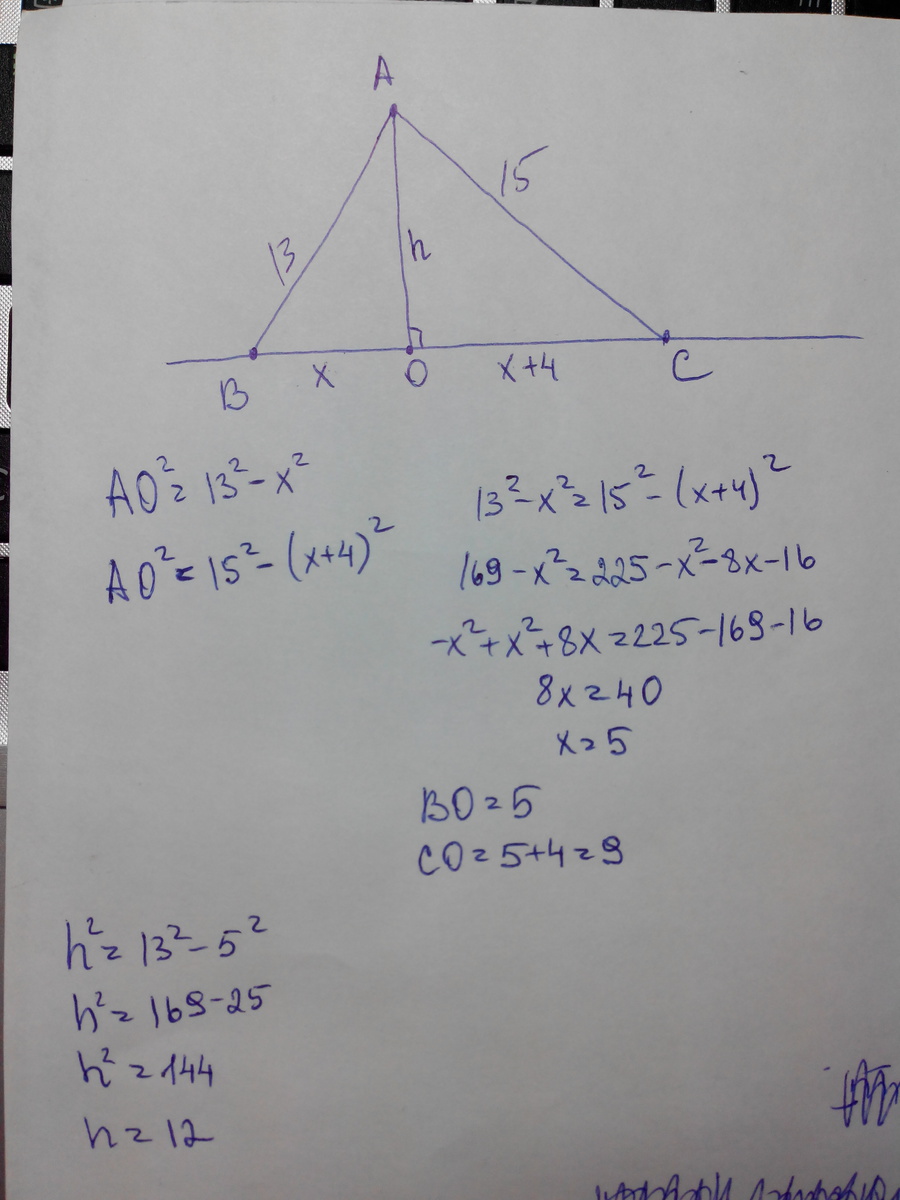 A
13
15
h
B
x
O
x+4
C
AO²=13²-x²
AO²=15²-(x+4)²
13²-x²=15²-(x+4)²
169-x²=225-x²-8x-16
-x²+x²+8x=225-169-16
8x=40
x=5
BO=5
CO=5+4=9
h²=13²-5²
h²=169-25
h²=144
h=12